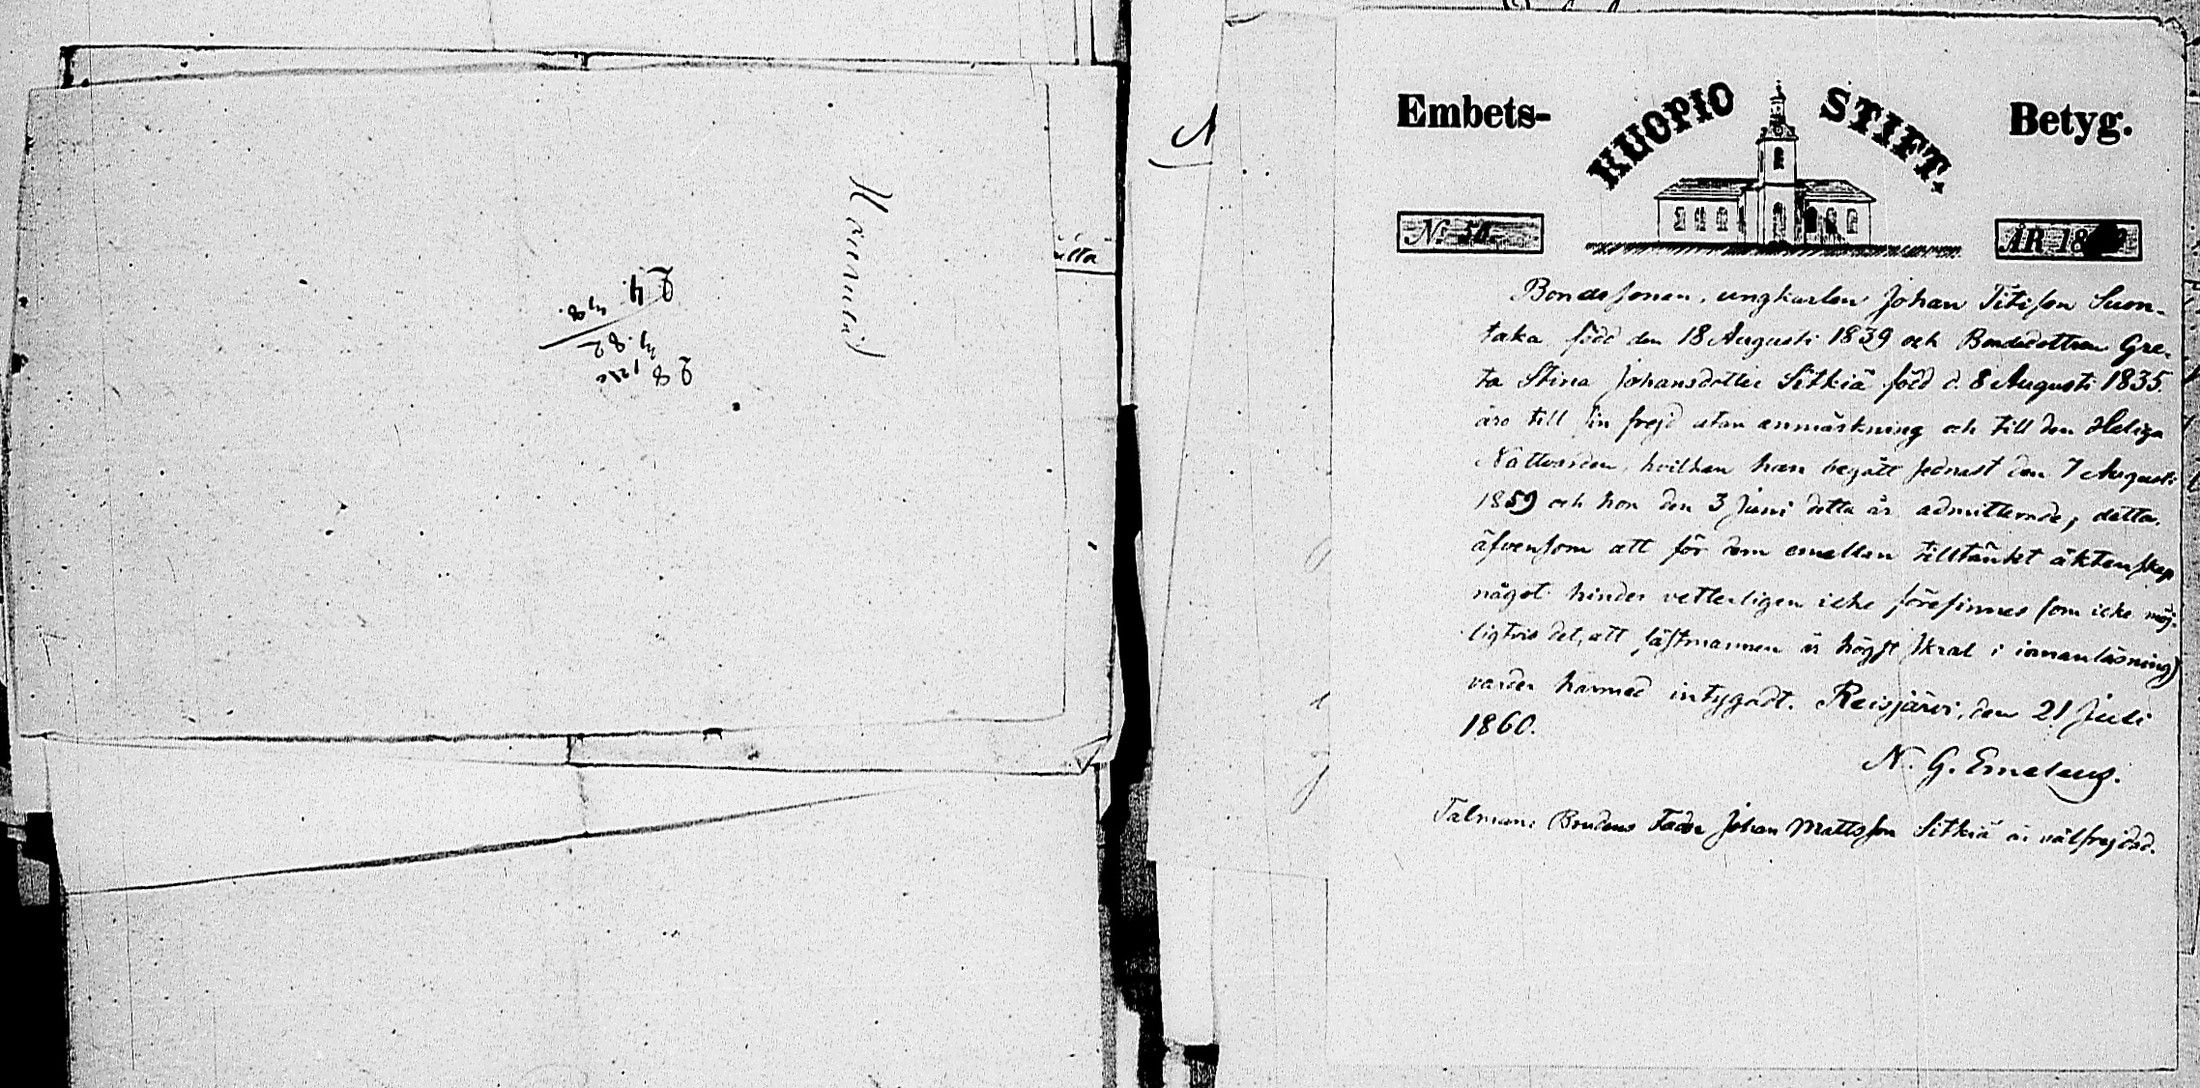 Embets-
KUOPIO STIFT.
Betyg.
N:
ÅR 18
Bondesonen, ungkarlen Johan Titisson Suon-
taka född den 18 Augusti 1839 och Bondedottren Gre-
ta Stina Johansdotter Sitkiä född d. 8 Augusti 1835.
äro till sin frejd utan anmärkning och till den Heliga
Nattvarden, hvilken han begått sednast den 7 Augusti
1859 och hon den 3 Juni detta år admitterade, detta,
äfvensom att för dem emellan tilltänkt äktenskap
något hinder vetterligen icke förefinnes (om icke möj-
ligtvis det, att fästmannen är högst skral i innanläsning)
varder härmed intygadt. Reisjärvi, den 21 Juli
1860.
N. G. Emeleus.
Talman: Brudens Fader Johan Mattsson Sitkiä är välfrejdad.